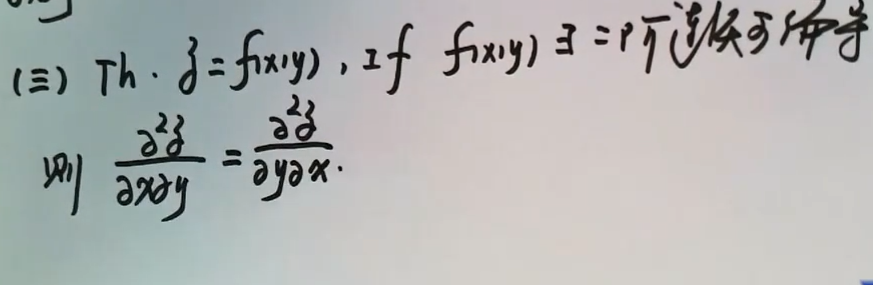 (三) Th. z=f(x,y), If f(x,y) ∃ 二阶连续可偏导
则 ∂²z/∂x∂y = ∂²z/∂y∂x.